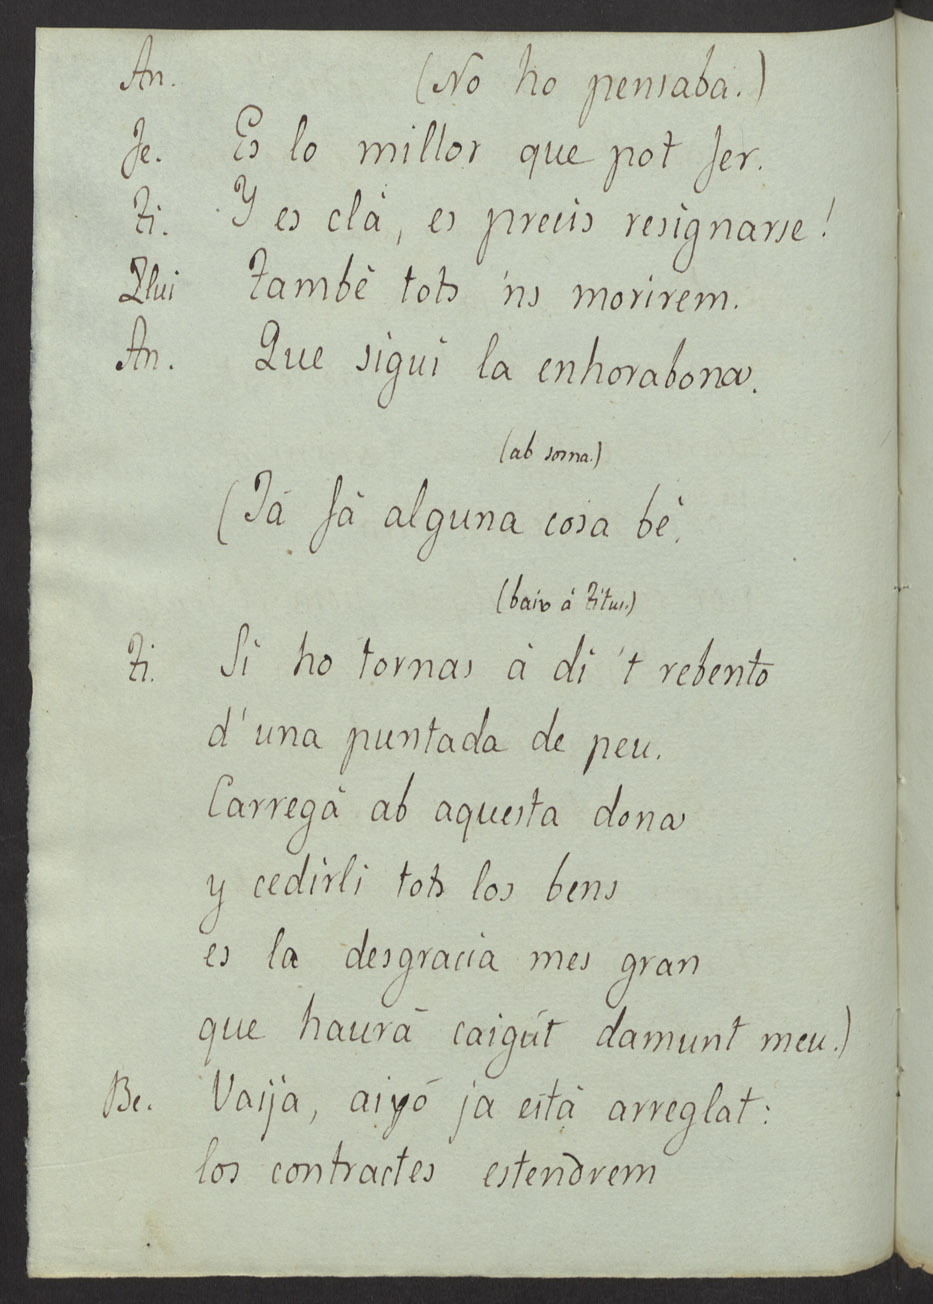 An. (No ho pensaba.)
Je. Es lo millor que pot ser.
Ti. Y es clà, es precis resignarse!
Llui També tots 'ns morirem.
An. Que sigui la enhorabona.
(ab sorna.)
(Já fà alguna cosa bé.
(baix á Titus.)
Ti. Si ho tornas à di 't rebento
d'una puntada de peu.
Carregà ab aquesta dona
y cedirli tots los bens
es la desgracia mes gran
que haurà caigút damunt meu.)
Be. Vaija, aiyó ja està arreglat:
los contractes estendrem